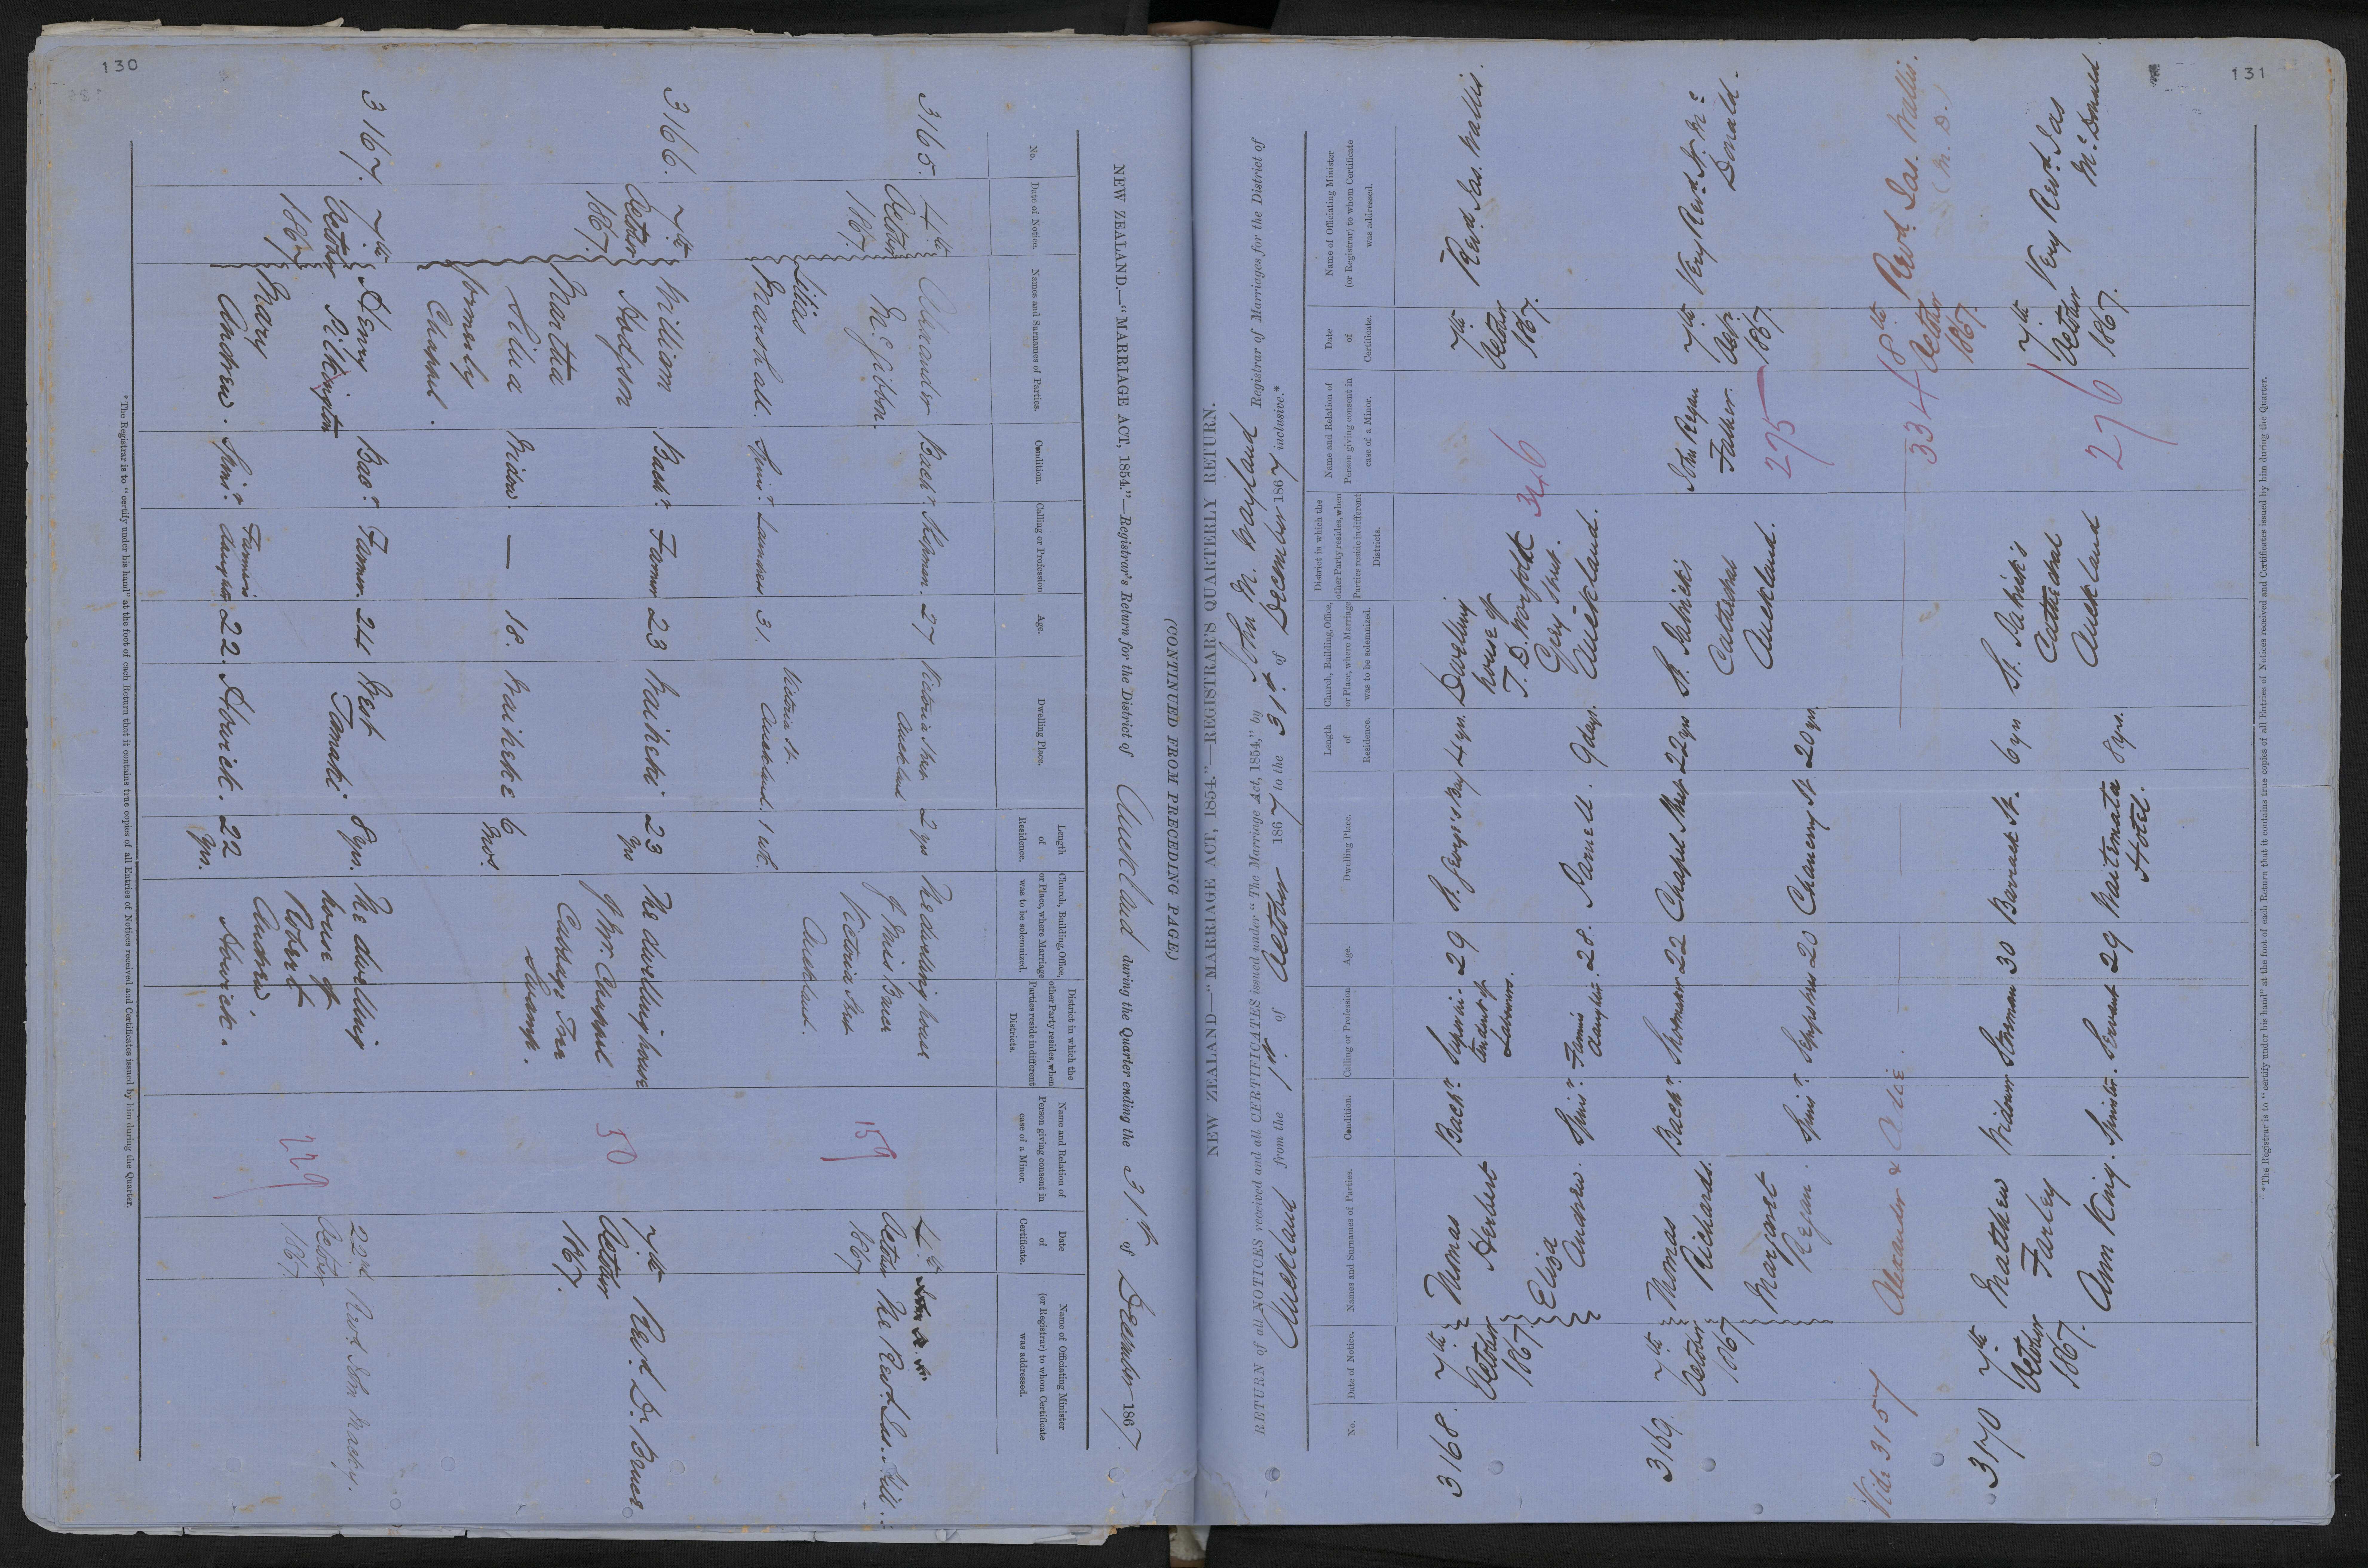 130
(CONTINUED FROM PRECEDING PAGE)
NEW ZEALAND.—"MARRIAGE ACT, 1854."—Registrar's Return for the District of Auckland during the Quarter ending the 31st of December 1867
No.
Date of Notice.
Names and Surnames of Parties.
Condition.
Calling or Profession
Age.
Dwelling Place.
Length
of
Residence.
Church, Building, Office,
or Place, where Marriage
was to be solemnized.
District in which the
other Party resides, when
Parties reside in different
Districts.
Name and Relation of
Person giving consent in
case of a Minor.
Date
of
Certificate.
Name of Officiating Minister
(or Registrar) to whom Certificate
was addressed.
3165.
4th
October
1867.
Alexander
McGibbon.
Bachr.
27
Victoria Street
Auckland
2 yrs
The dwelling house
of Miss Bauer
Victoria Street
Auckland.
159
4th
October
1867
The Revd. Jas. Hill.
Marshall.
Spinr.
Laundress
31.
Victoria St.
Auckland.
1 wk.
3166.
7th
October
1867.
William
Hodgson
Bachr.
Farmer
23
Waiheki
23
yrs
The dwelling house
of Mr. Chappel
Cabbage Tree
Swamp.
50
7th
October
1867.
Revd. Dr. Bruce
Martha
formerly
Chappel.
Widow.
—
18.
Waiheke
6
mos.
3167.
7th
October
1867
Henry
Pilkington
Bacr.
Farmer
24
West
Tamaki
8 yrs.
The dwelling
house of
Robert
Andrew,
Howick.
229
22nd
October
1867
Revd. John Macky.
Mary
Andrew.
Spinr.
Farmer's
daughter
22.
Howick.
22
yrs.
*The Registrar is to "certify under his hand" at the foot of each Return that it contains true copies of all Entries of Notices received and Certificates issued by him during the Quarter.
131
NEW ZEALAND—"MARRIAGE ACT, 1854."—REGISTRAR'S QUARTERLY RETURN.
RETURN of all NOTICES received and all CERTIFICATES issued under "The Marriage Act, 1854," by John M. Wayland Registrar of Marriages for the District of
Auckland from the 1st of October 1867 to the 31st of December 1867 inclusive.*
No.
Date of Notice.
Names and Surnames of Parties.
Condition.
Calling or Profession
Age.
Dwelling Place.
Length
of
Residence.
Church, Building, Office,
or Place, where Marriage
was to be solemnized.
District in which the
other Party resides, when
Parties reside in different
Districts.
Name and Relation of
Person giving consent in
case of a Minor.
Date
of
Certificate.
Name of Officiating Minister
(or Registrar) to whom Certificate
was addressed.
3168.
7th
October
1867.
Thomas
Herbert
Bachr.
Superin-
tendent of
Labourers.
29
St. George's Bay
4 yrs.
Dwelling
house of
T. D.
Grey Street.
Auckland.
346
7th
October
1867.
Revd. Jas. Wallis.
Eliza
Andrew.
Spinr.
Farmer's
daughter.
28.
Parnell.
9 days.
3169.
7th
October
1867
Thomas
Richards.
Bachr.
22
Chapel Street
22 yrs
St. Patrick's
Cathedral
Auckland.
John Regan
Father.
275
7th
Octr.
1867.
Very Revd. Mc
Donald.
Margaret
Regan.
Spinr.
20
Chancery St.
20 yrs.
Vide 3157
Alexander &
334
18th
October
1867.
Revd. Jas. Wallis.
3170
7th
October
1867.
Matthew
Farley
Widower
30
Barrack St.
6 yrs
St. Patrick's
Cathedral
Auckland
276
7th
October
1867.
Very Revd. Jas
McDonald
Ann King.
Spinster.
Servant
29
Waitemata
Hotel.
8 yrs.
*The Registrar is to "certify under his hand" at the foot of each Return that it contains true copies of all Entries of Notices received and Certificates issued by him during the Quarter.